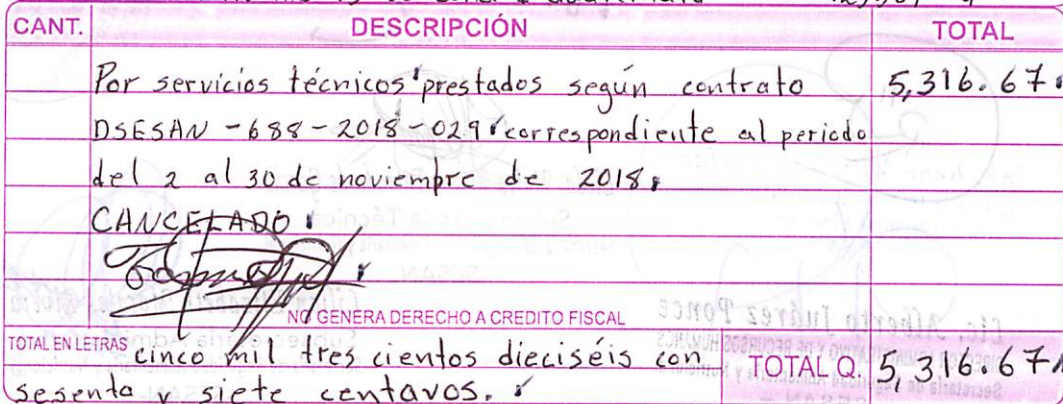 CANT. DESCRIPCIÓN TOTAL
Por servicios técnicos prestados según contrato 5,316.67
DSESAN-688-2018-029 correspondiente al periodo
del 2 al 30 de noviembre de 2018,
CANCELADO
NO GENERA DERECHO A CREDITO FISCAL
TOTAL EN LETRAS cinco mil tres cientos dieciséis con
sesenta y siete centavos. TOTAL Q. 5,316.67